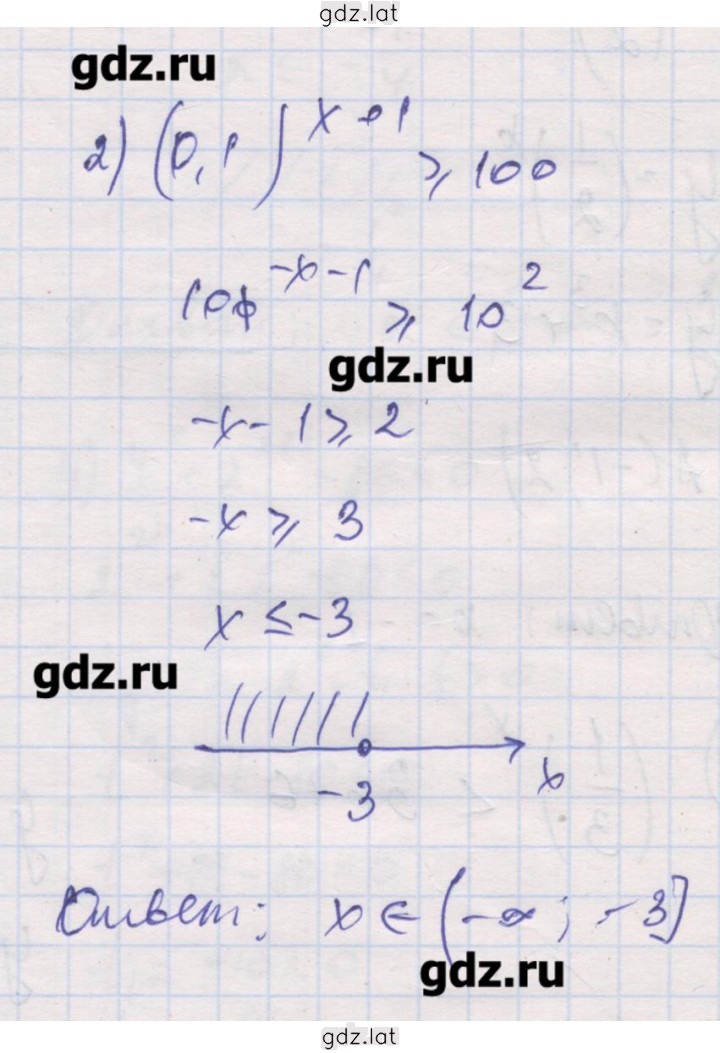 gdz.lat
gdz.ru
2) (0,1)^{x+1} ≥ 100
10^{-x-1} ≥ 10^2
gdz.ru
-x-1 ≥ 2
-x ≥ 3
x ≤ -3
gdz.ru
-3
x
Ответ: x ∈ (-∞; -3]
gdz.ru
gdz.lat